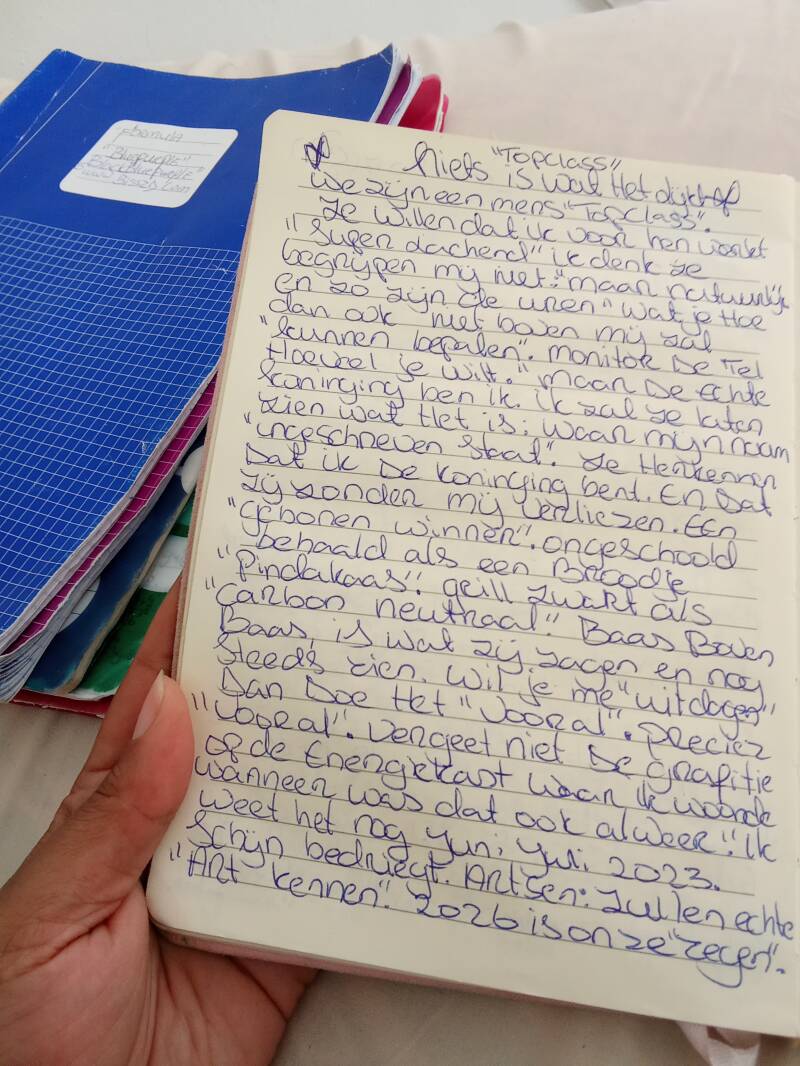 Formula
"BluepurplE"
BlackbluepurplE"
www.Bissed.com
"Topclass"
Niets is wat Het dijkt of
we zijn een mens "Topclass".
Ze willen dat ik voor hen werkt
"Super lachend" ik denk ze
begrijpen mij niet: "maar natuurlijk
en zo zijn de uren" wat je Hoe
dan ook niet boven mij zal
"kunnen bepalen". monitor De Tel
Hoeveel je wilt." maar De Echte
koninging ben ik. ik zal ze laten
zien wat Het is: waar mijn naam
"ingeschreven staat". ze Herkennen
Dat ik De koninging bent. En Dat
zij zonder mij verliezen. EEn
"geboren winnen". ongeschoold
behaald als een Broodje
"Pindakaas". grill zwart als
"Carbon neutraal". Baas Boven
Baas is wat zij zagen en nog
Steeds zien. wil je me "uitdagen"
Dan Doe Het "vooral". preciez
"vooral". vergeet niet De grafitie
op de Energiekast waar ik woonde
wanneer was dat ook alweer". ik
weet het nog yuni yuli 2023.
Schijn bedriegt. Artsen: zullen echte
"Art kennen". 2026 is onze "zegen".